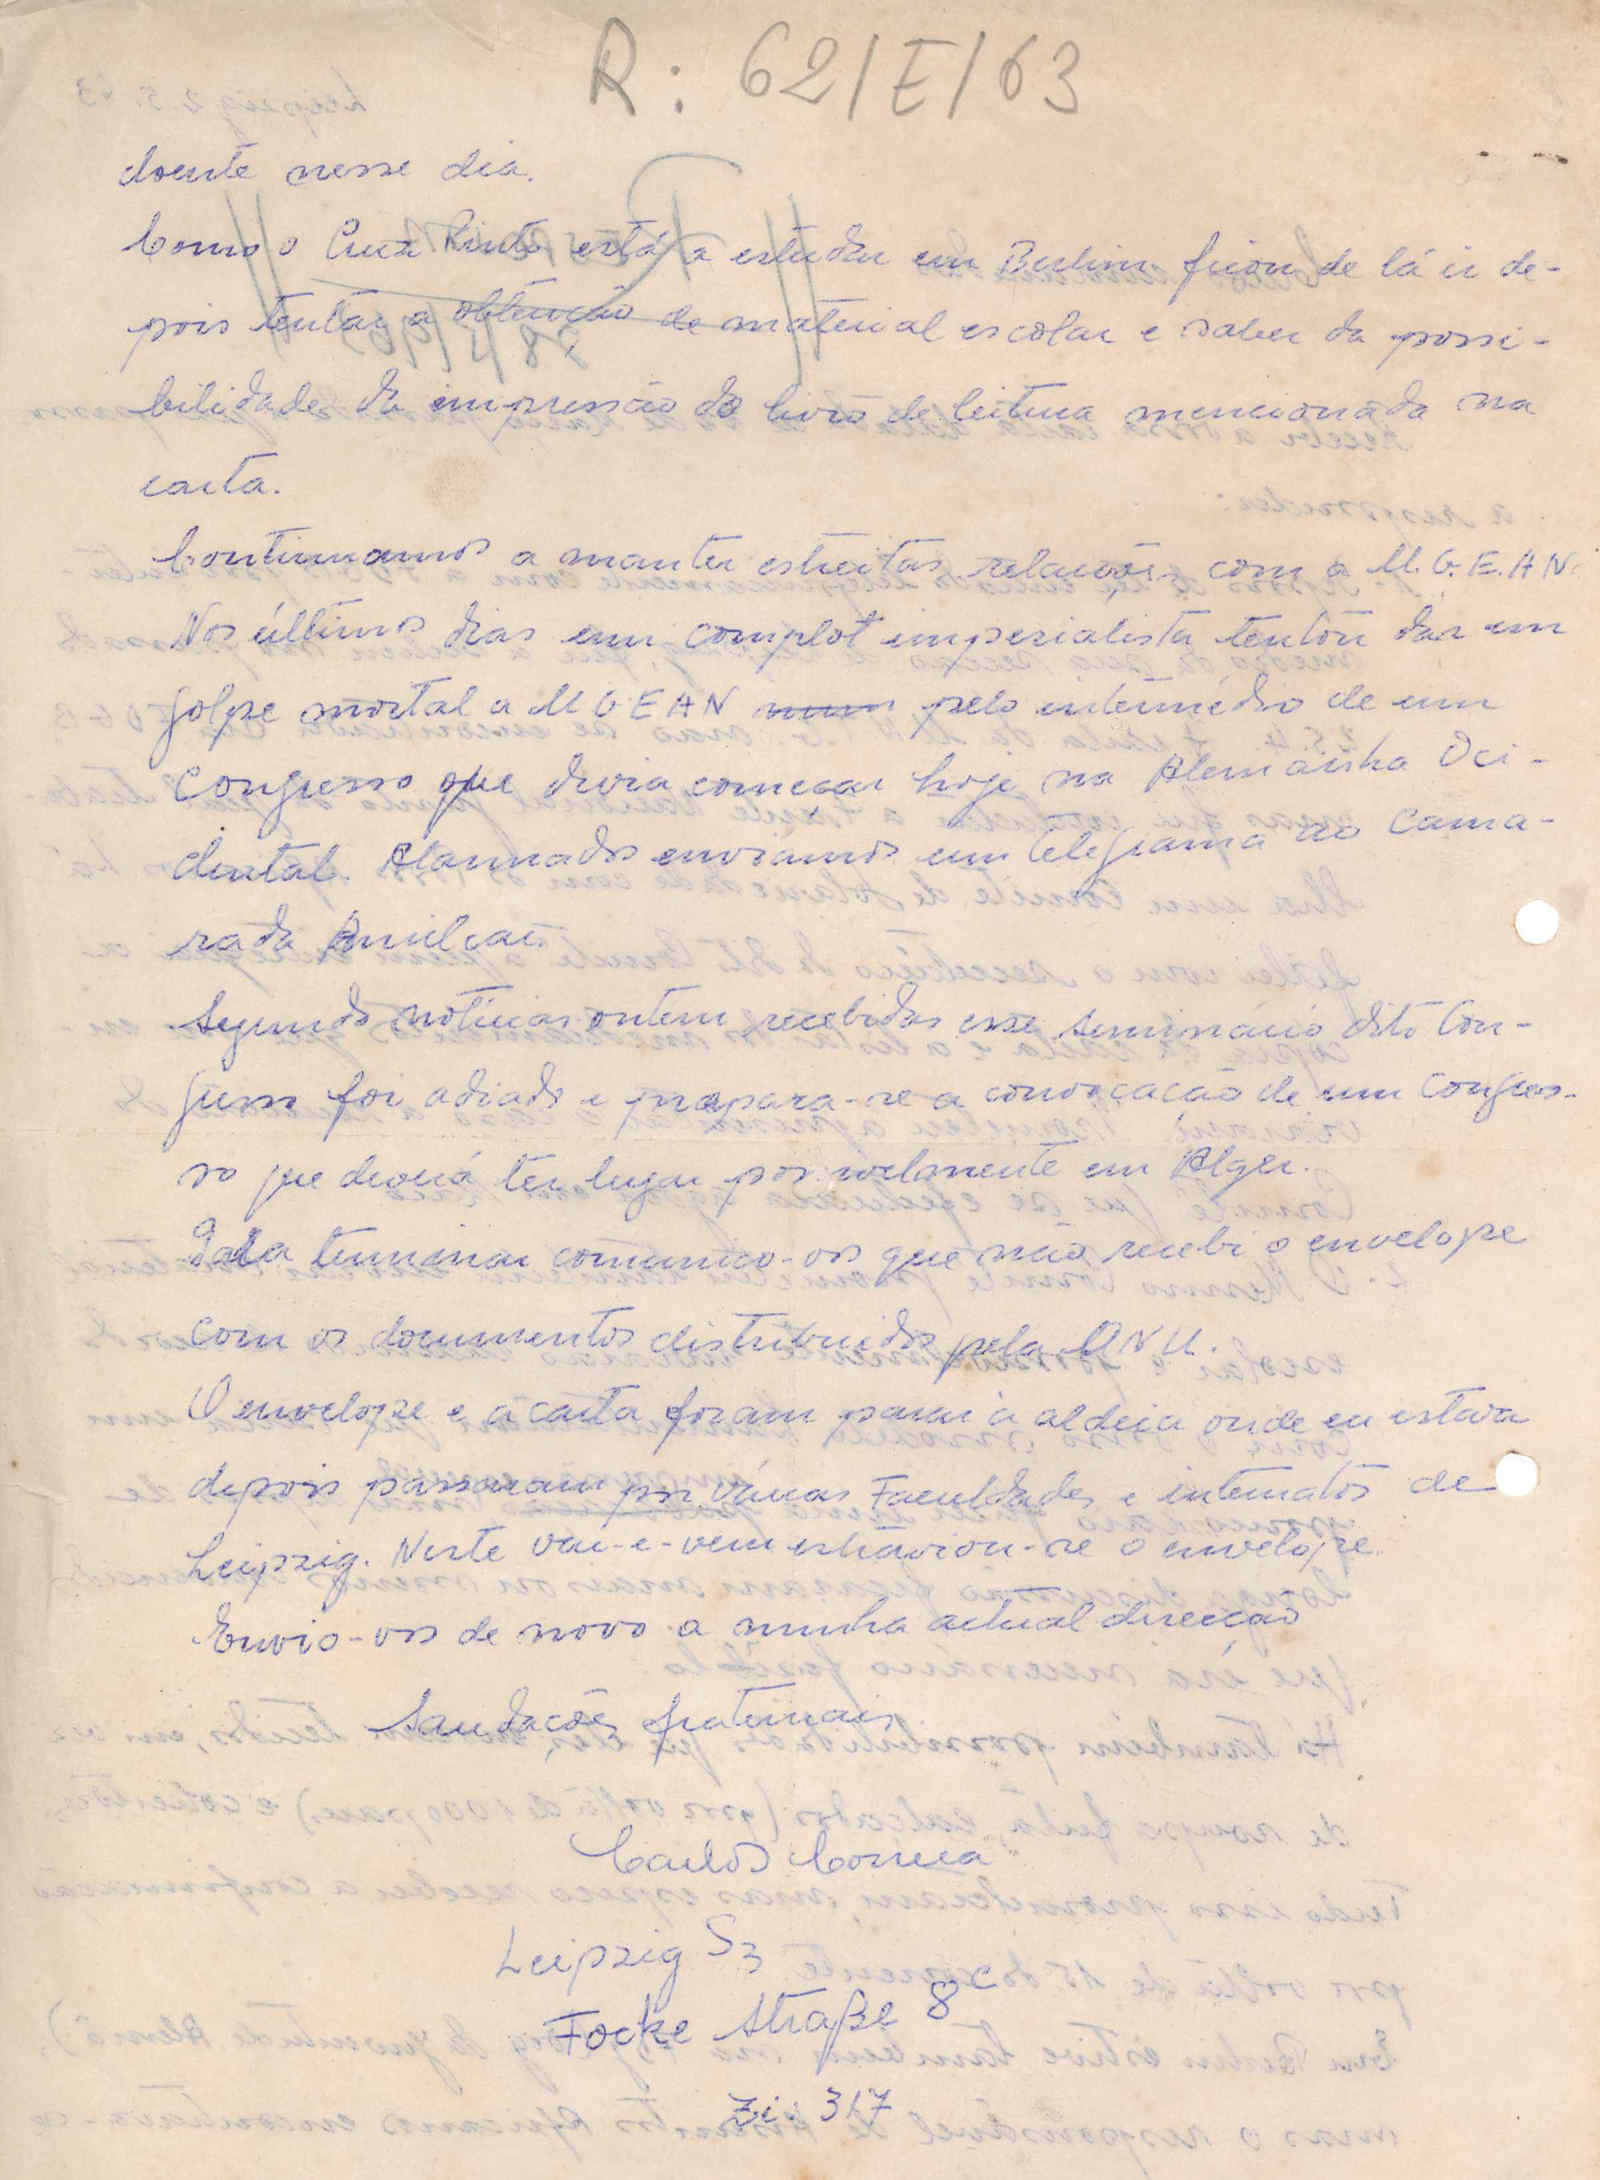 R: 62/E/63
doente nesse dia.
Como o Cruz Pinto está a estudar em Berlim ficou de lá ir de-
pois tentar a obtenção de material escolar e saber da possi-
bilidade da impressão do livro de leitura mencionada na
carta.
Continuamos a manter estreitas relações com a M.G.E.A.N.
Nos últimos dias um complot imperialista tentou dar um
golpe mortal a MGEAN pelo intermédio de um
Congresso que devia começar hoje na Alemanha Oci-
dental. Alarmados enviamos um telegrama ao Cama-
rada Amilcar.
Segundo noticias ontem recebidas esse seminário dito Con-
gresso foi adiado e prepara-se a convocação de um Congres-
so que deverá ter lugar possivelmente em Alger.
Para terminar comunico-vos que não recebi o envelope
com os documentos distribuidos pela ONU.
O envelope e a carta foram parar à aldeia onde eu estava
depois passaram por várias Faculdades e internatos de
Leipzig. Neste vai-e-vem extraviou-se o envelope.
Envio-vos de novo a minha actual direcção
Saudações fraternais
Carlos Correia
Leipzig S3
Focke Straße 8c
Zi: 317